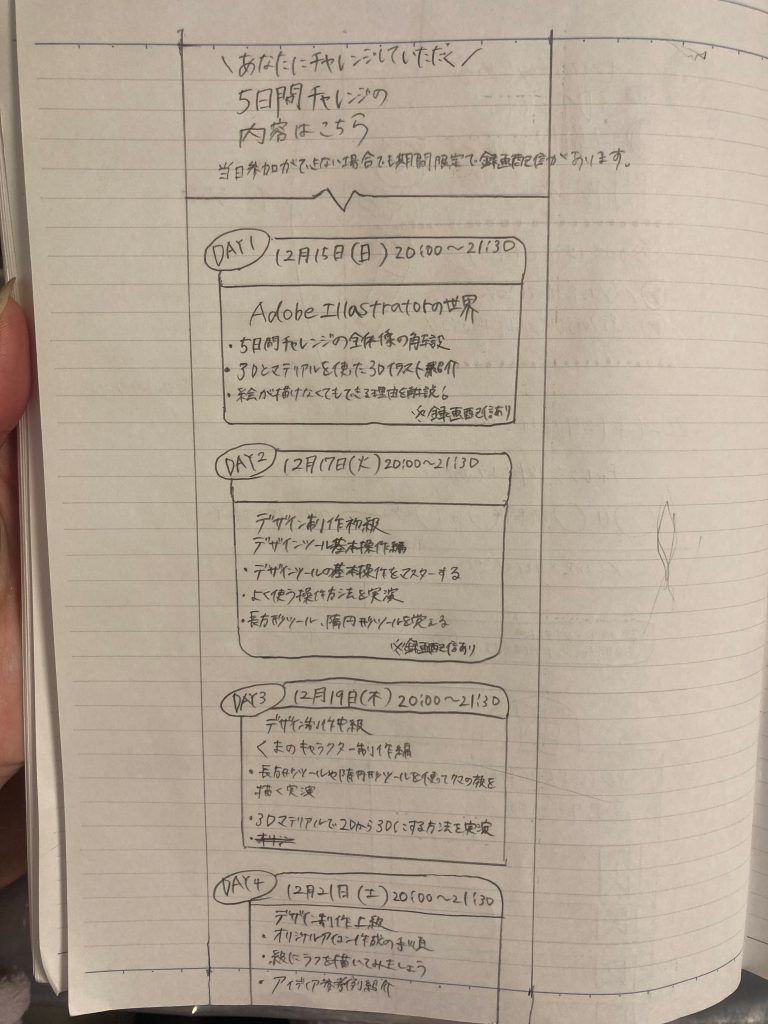 \あなたにチャレンジしていただく/
5日間チャレンジの
内容はこちら
当日参加ができない場合でも期間限定で録画配信があります。
DAY1 12月15日(日)20:00〜21:30
Adobe Illastratorの世界
・5日間チャレンジの全体像の解説
・3Dとマテリアルを使った3Dイラスト紹介
・絵が描けなくてもできる理由を解説
※録画配信あり
DAY2 12月17日(火)20:00〜21:30
デザイン制作初級
デザインツール基本操作編
・デザインツールの基本操作をマスターする
・よく使う操作方法を実演
・長方形ツール、楕円形ツールを覚える
※録画配信あり
DAY3 12月19日(木)20:00〜21:30
デザイン制作中級
くまのキャラクター制作編
・長方形ツールや楕円形ツールを使ってクマの顔を
描く実演
・3Dマテリアルで2Dから3Dにする方法を実演
DAY4 12月21日(土)20:00〜21:30
デザイン制作上級
・オリジナルアイコン作成の手順
・紙にラフを描いてみましょう
・アイディア参考例紹介